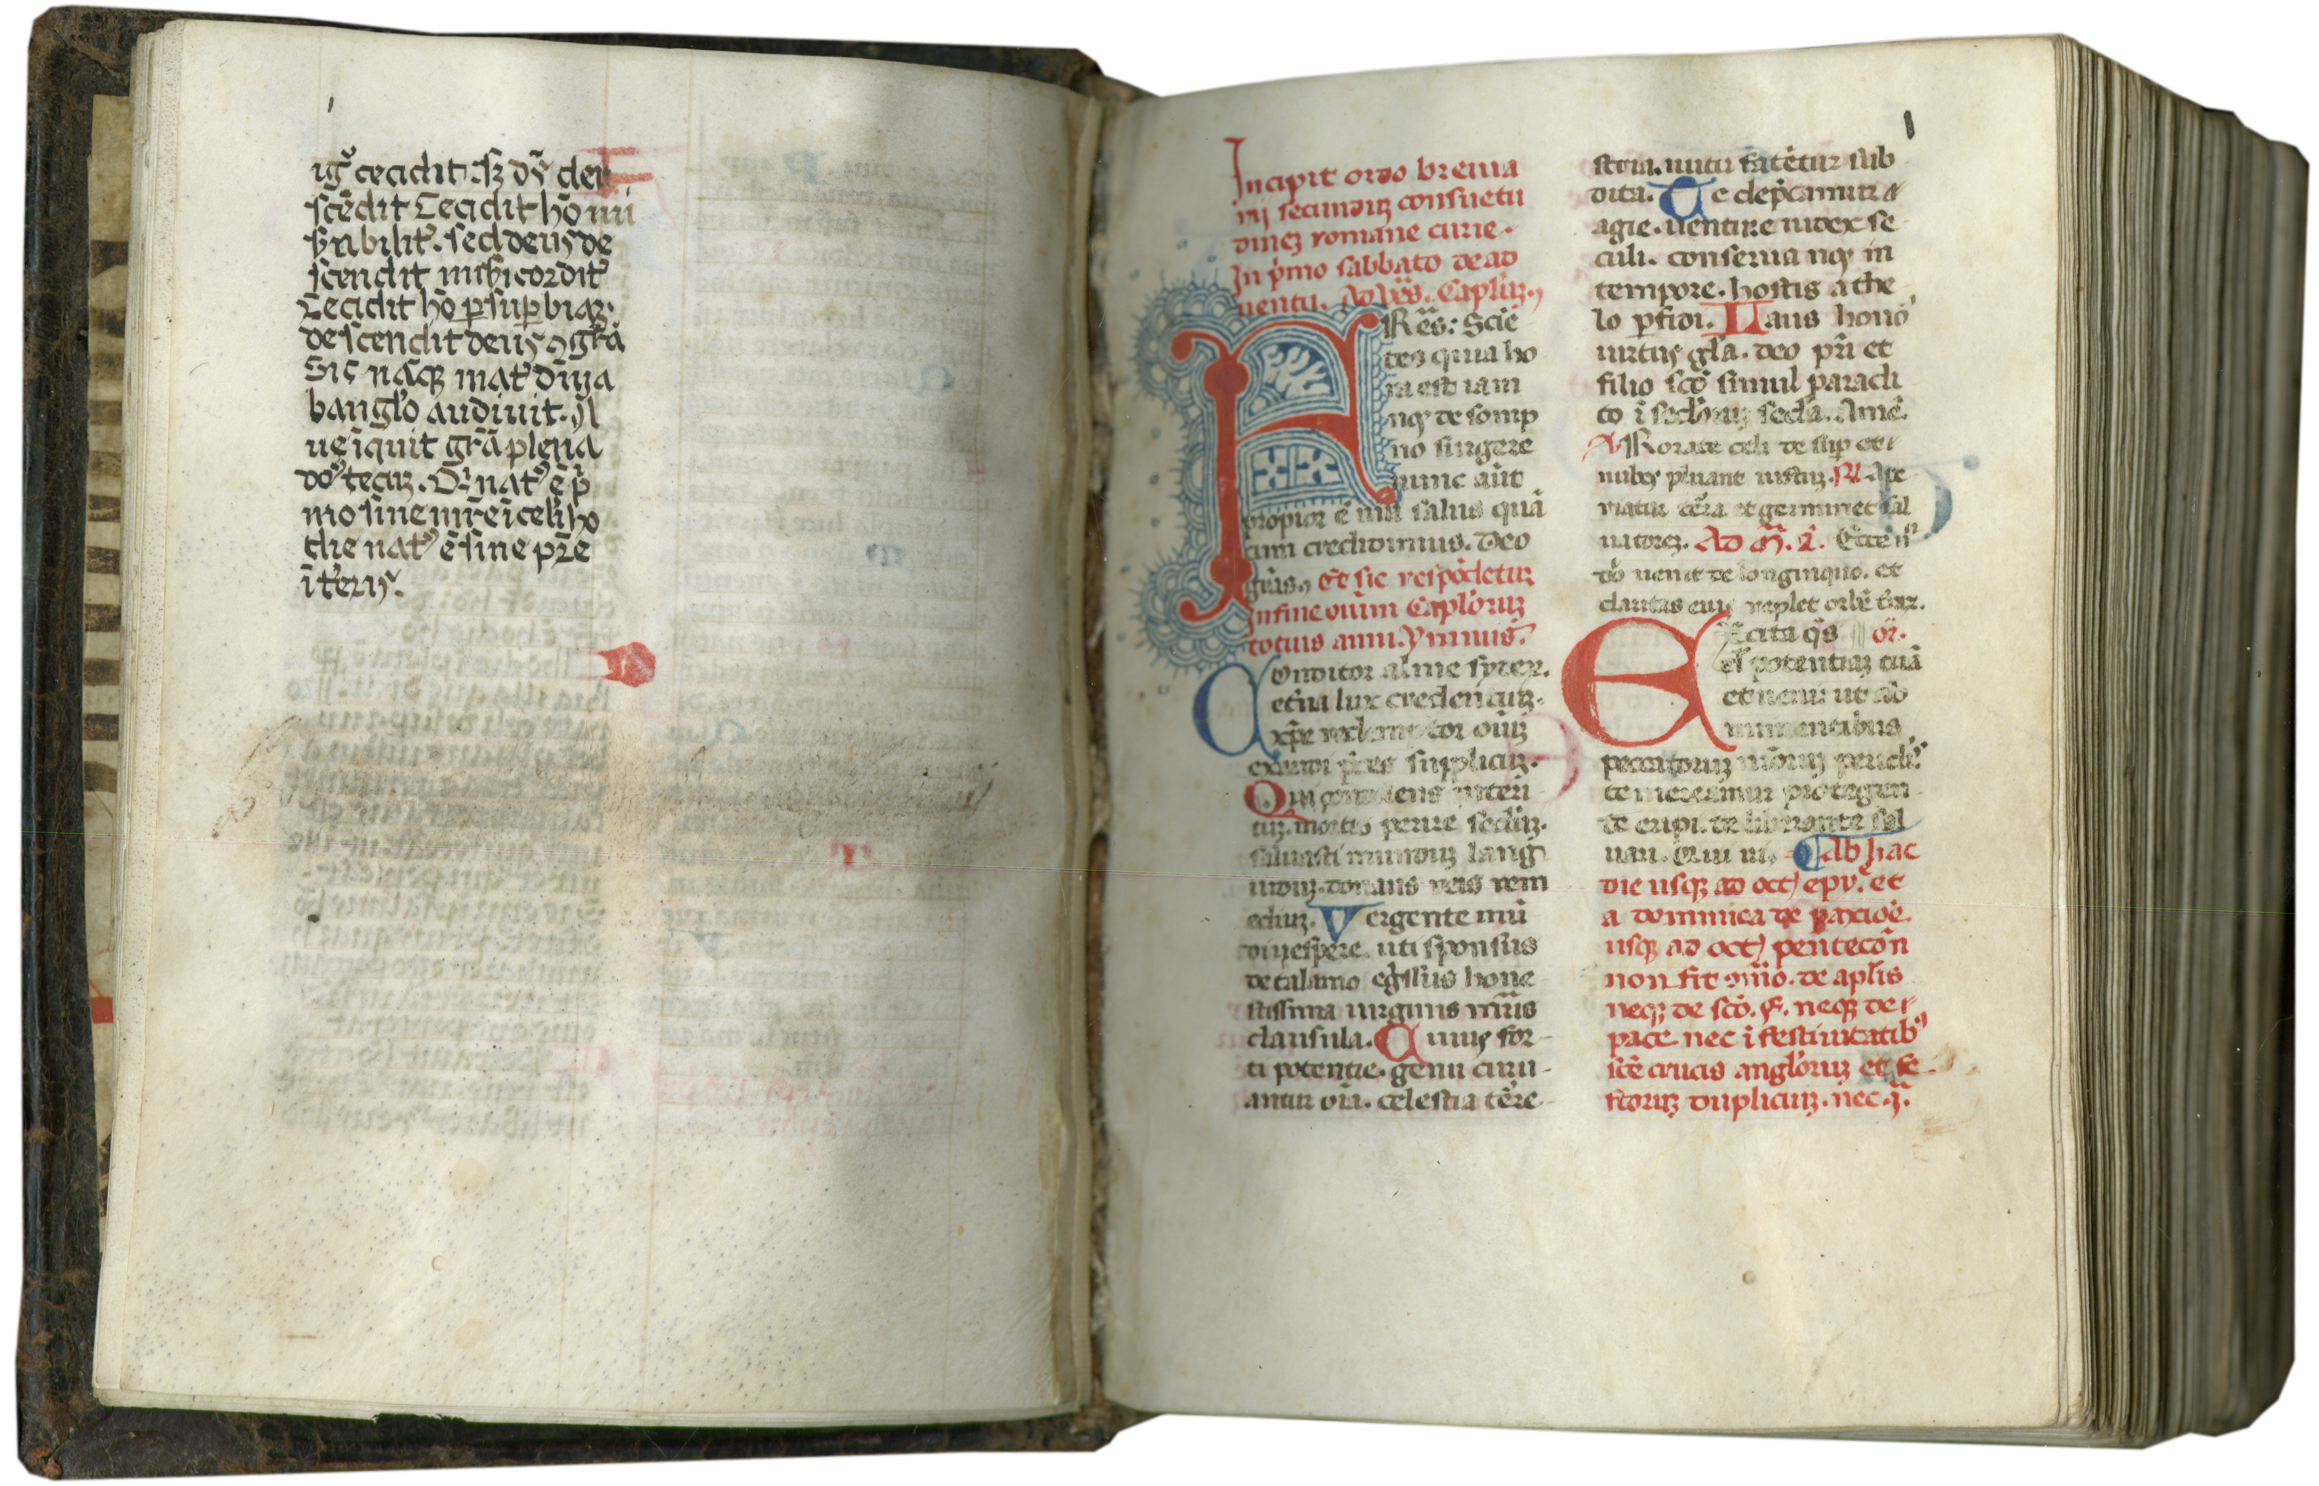 ı
igr̃ cecidit. sꝫ dỹ den
scẽdit Cecidit hõ mi
s̃abilit̃. sed deus de
scendit mis̃icordit̃
Cecidit hõ ꝑ suꝑbiaꝫ.
descendit deus ꝯ grã
Sic nãqꝫ mat̃ diuỹa
ab anglo audiuit. A
ue iquit grã plena
dõs tecuꝫ. Qui nat̃ ẽ p̃
mo sine mr̃e i celis ho
die nat̃ ẽ sine pr̃e
i t̃eris.
1
Incipit ordo breuia
rij secunduꝫ consuetu
dineꝫ romane curie.
In p̃mo sabbato de ad
uentu. Ad ṽes. Caplm̃.
FRẽs: Sciẽ
tes quia ho
ra est iam
nos de somp
no surgere
nunc aũt
propior ẽ nr̃a salus quã
cum credidimus. Deo
grãs. Et sic respõdetur
in fine oĩum Caplõruꝫ
totius anni. ymnus.
Conditor alme syderꝫ.
et̃na lux credentiuꝫ.
xp̃e redemptor oĩuꝫ
exaudi p̃ces supplicuꝫ.
Qui condolens interi
tu. mortis perire sec̃luꝫ.
saluasti munduꝫ lang
uiduꝫ. donans reis rem
ediuꝫ. Vergente mũ
di uespere. uti sponsus
de talamo eg̃ssus hone
stissima uirginis mr̃is
clausula. Cuius for
ti potentie. genu curu
antur oĩa. celestia tẽre
stria. nutu fatẽtur sub
dita. Te dep̃camur a
gie. uenture iudex se
culi. conserua nos in
tempore. hostis a the
lo ꝑfidi. Laus honõ
uirtus glã. deo pr̃i et
filio scõ simul paracli
to ĩ secl̃oruꝫ secl̃a. Amẽ.
℣ Rorate celi desuꝑ et
nubes pluant iustuꝫ. ℟ Ape
riatur tẽra et germinet sal
uatoreꝫ. Ad M̃. a̅. Ecce nõ
dõi uenit de longinquo. et
claritas eius replet orbẽ t̃raꝝ.
Excita q̃s or̃.
dñe potentiaꝫ tuã
et ueni: ut ab
imminentibus
peccatoruꝫ nr̃oruꝫ periclis
te mereamur protegen
te eripi. te liberante sal
uari. Qui ui. Ab hac
die usqꝫ ad oct̃ epỹ. et
a dominica de paxiõe.
usqꝫ ad oct̃ pentecõn
non fit ꝯm̃o. de aplĩs
neqꝫ de scõ. F. neqꝫ de
pace. nec ĩ festiuitatibꝰ
scẽ crucis angl̃oruꝫ et fe
storuꝫ dupliciuꝫ. nec q̃.